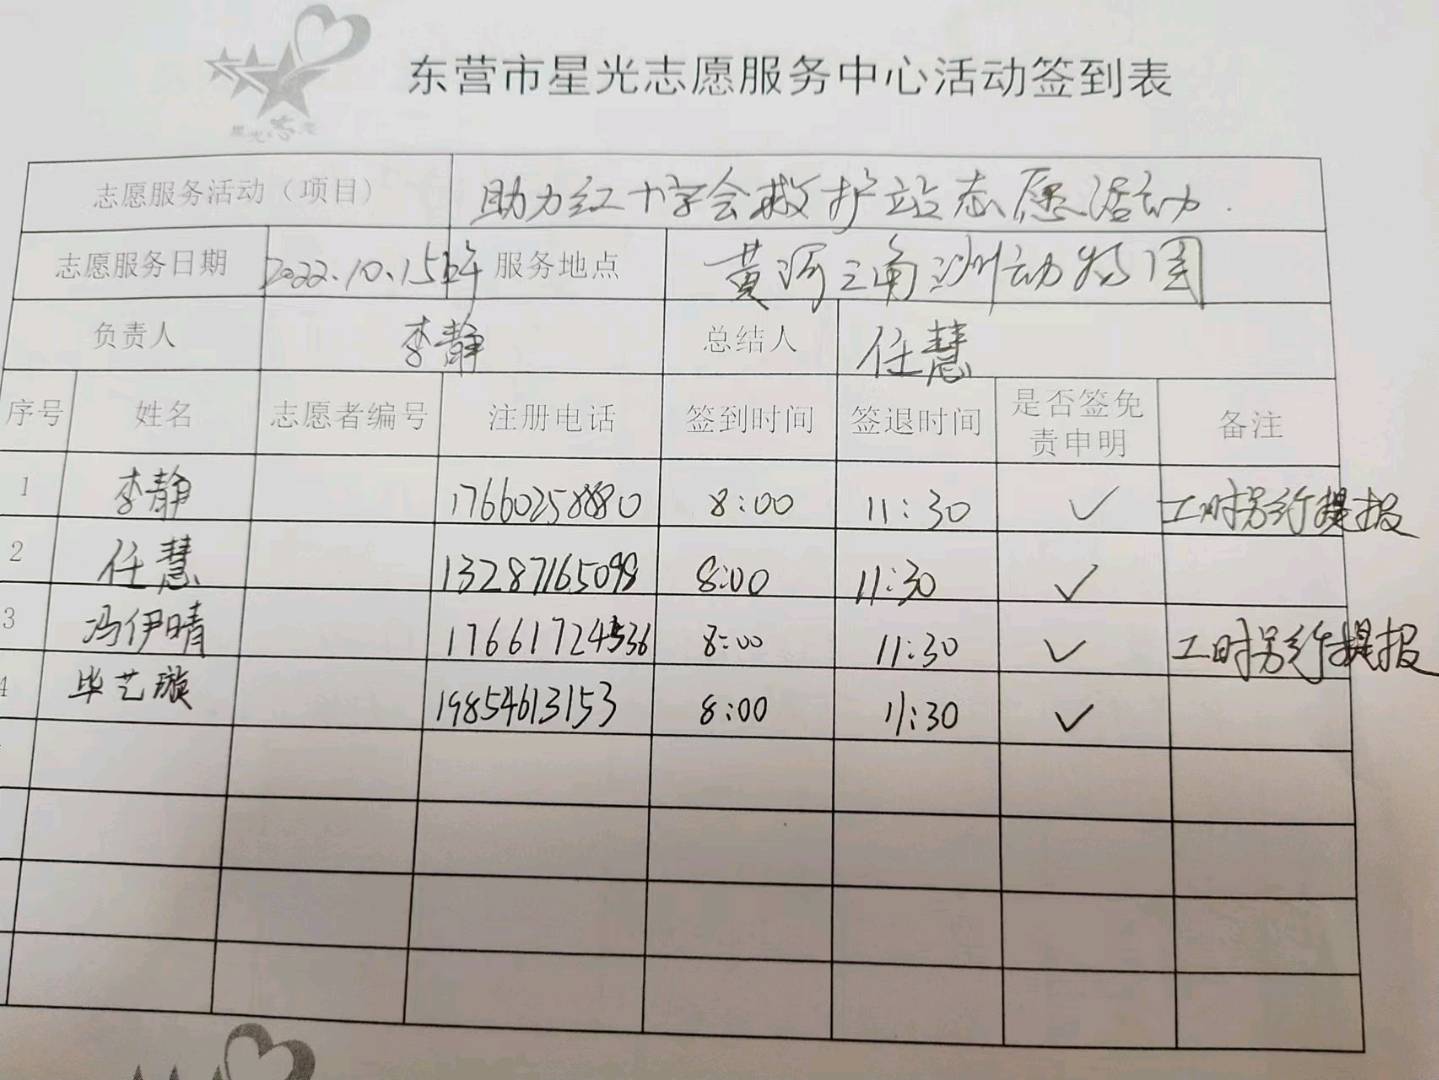 东营市星光志愿服务中心活动签到表
志愿服务活动（项目） 助力红十字会救护站志愿活动.
志愿服务日期 2022.10.15 服务地点 黄河三角洲动物园
负责人 李静 总结人 任慧
序号 姓名 志愿者编号 注册电话 签到时间 签退时间 是否签免责申明 备注
1 李静 17660258880 8:00 11:30 ✓ 工时另行提报
2 任慧 13287165098 8:00 11:30 ✓
3 冯伊晴 17661724536 8:00 11:30 ✓ 工时另行提报
4 毕艺璇 19854613153 8:00 11:30 ✓